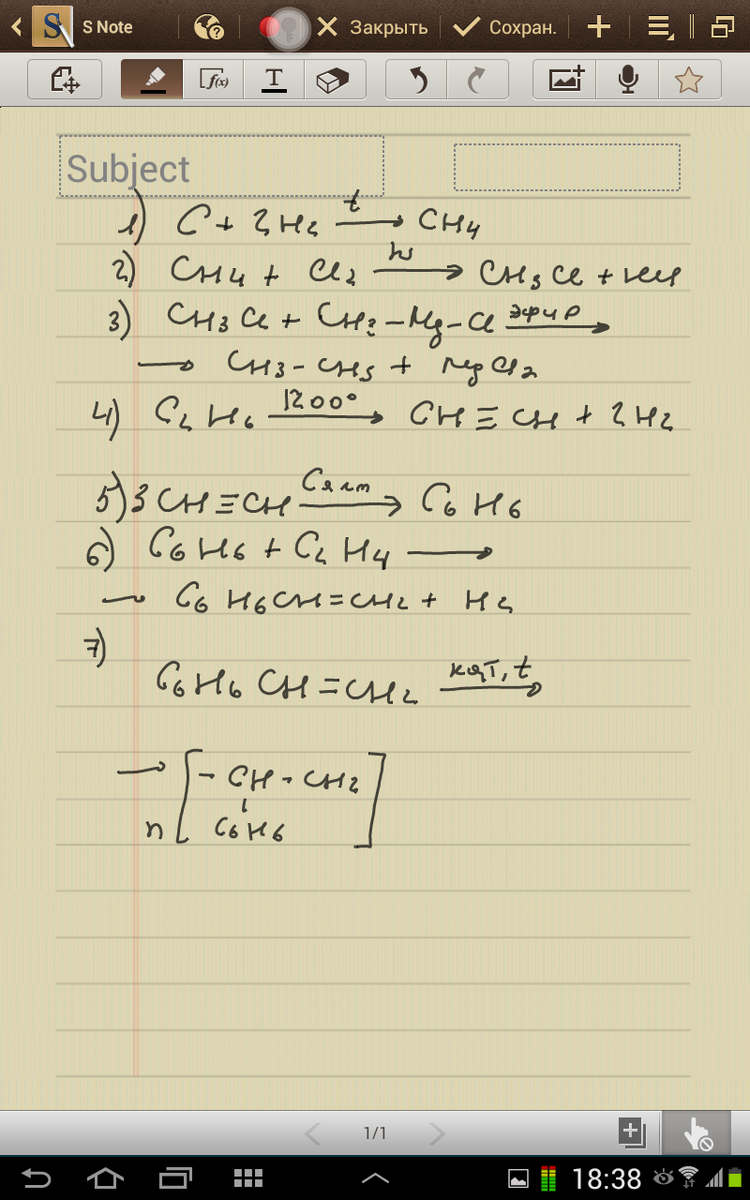 S Note Закрыть Сохран.
f(x) T
Subject
1) C + 2H2 t→ CH4
2) CH4 + Cl2 hν→ CH3Cl + HCl
3) CH3Cl + CH3–Mg–Cl эфир→
→ CH3–CH3 + MgCl2
4) C2H6 1200°→ CH≡CH + 2H2
5) 3CH≡CH Cакт→ C6H6
6) C6H6 + C2H4 →
→ C6H6CH=CH2 + H2
7)
C6H6CH=CH2 кат, t→
→ [–CH–CH2]
n C6H6
1/1
18:38